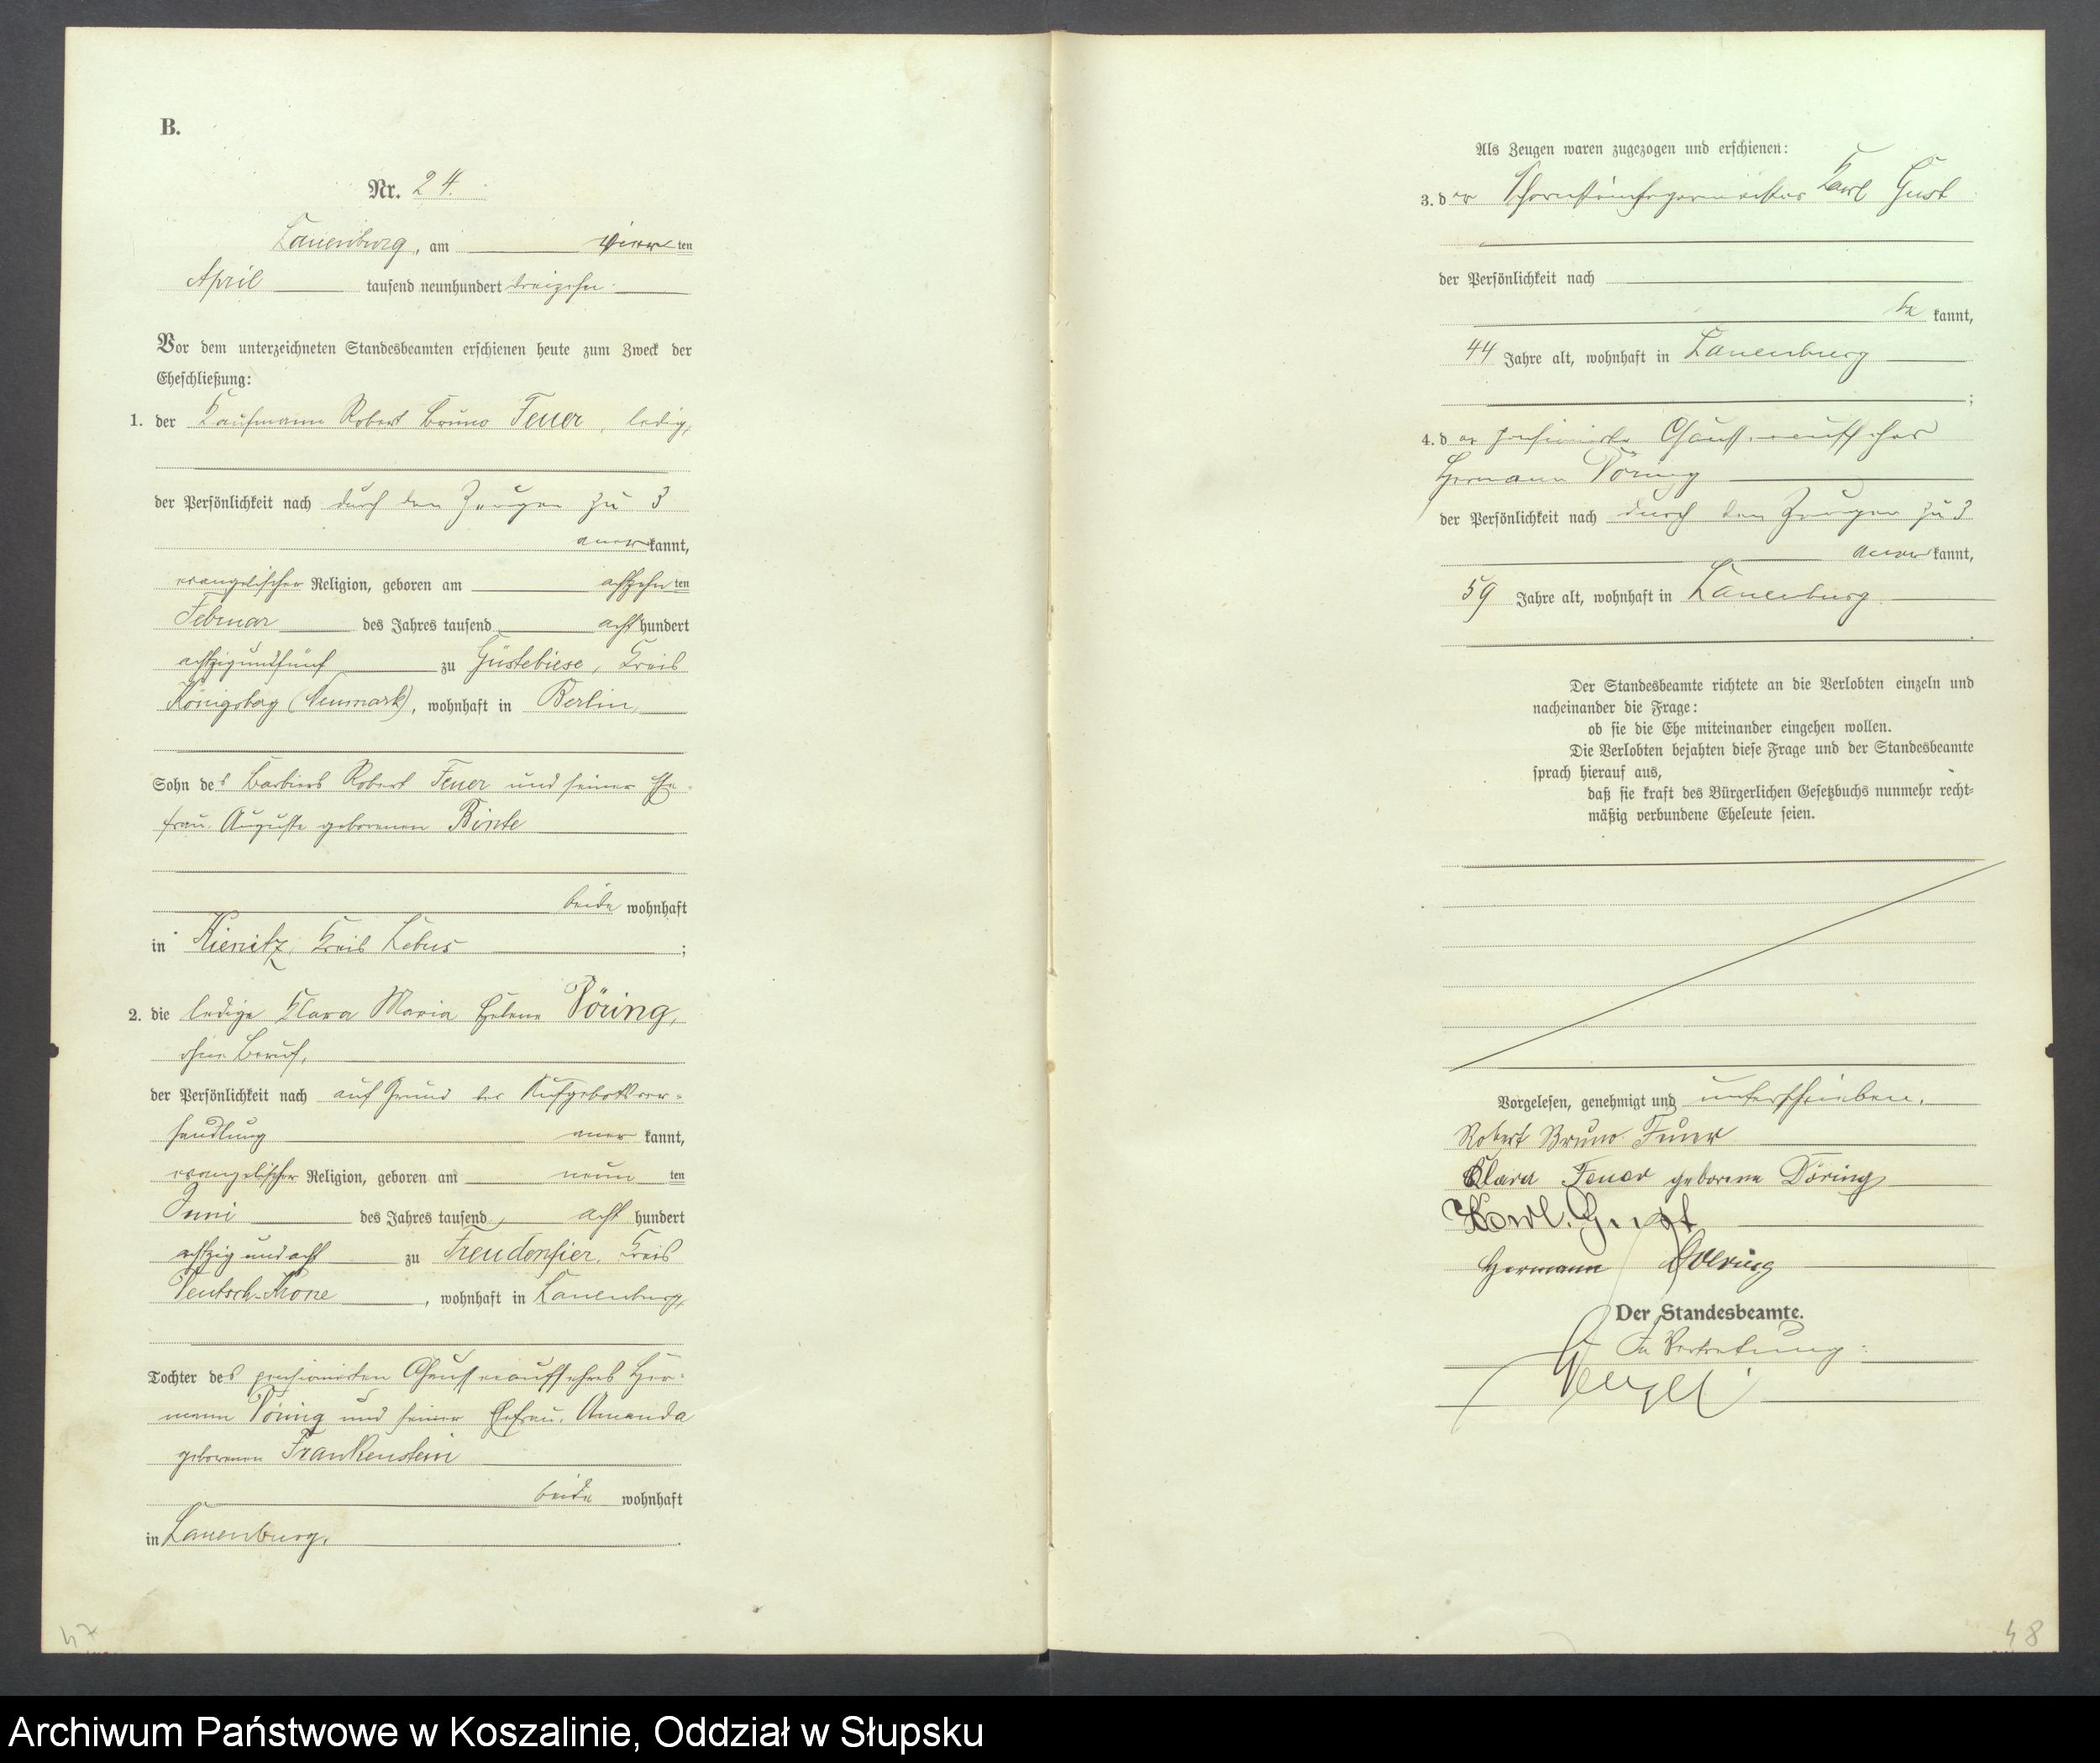 B.
Nr. 24.
Lauenburg, am vierten
April tausend neunhundert dreizehn.
Vor dem unterzeichneten Standesbeamten erschienen heute zum Zweck der
Eheschließung:
1. der Kaufmann Robert Bruno Feuer, ledig,
der Persönlichkeit nach durch den Zeugen zu 3
anerkannt,
evangelischer Religion, geboren am achtzehnten
Februar des Jahres tausend achthundert
achtzigundfünf zu Güstebiese, Kreis
Königsberg (Neumark), wohnhaft in Berlin,
Sohn des Barbiers Robert Feuer und seiner Ehe-
frau Auguste geborenen Binte
beide wohnhaft
in Kienitz, Kreis Lebus ;
2. die ledige Klara Maria Helene Döring,
ohne Beruf,
der Persönlichkeit nach auf Grund der Aufgebotsver-
handlung anerkannt,
evangelischer Religion, geboren am neunten
Juni des Jahres tausend achthundert
achtzigundacht zu Freudenfier, Kreis
Deutsch-Krone, wohnhaft in Lauenburg,
Tochter des pensionierten Chausseeaufsehers Her-
mann Döring und seiner Ehefrau, Amanda
geborenen Frankenstein
beide wohnhaft
in Lauenburg.
47
Als Zeugen waren zugezogen und erschienen:
3. der Schornsteinfegermeister Karl Gust
der Persönlichkeit nach
bekannt,
44 Jahre alt, wohnhaft in Lauenburg
;
4. der pensionierte Chausseeaufseher
Hermann Döring
der Persönlichkeit nach durch den Zeugen zu 3
anerkannt,
59 Jahre alt, wohnhaft in Lauenburg
.
Der Standesbeamte richtete an die Verlobten einzeln und
nacheinander die Frage:
ob sie die Ehe miteinander eingehen wollen.
Die Verlobten bejahten diese Frage und der Standesbeamte
sprach hierauf aus,
daß sie kraft des Bürgerlichen Gesetzbuchs nunmehr recht-
mäßig verbundene Eheleute seien.
Vorgelesen, genehmigt und unterschrieben.
Robert Bruno Feuer
Klara Feuer geborene Döring
Karl. Gust
Hermann Doering
Der Standesbeamte.
In Vertretung:
48
Archiwum Państwowe w Koszalinie, Oddział w Słupsku